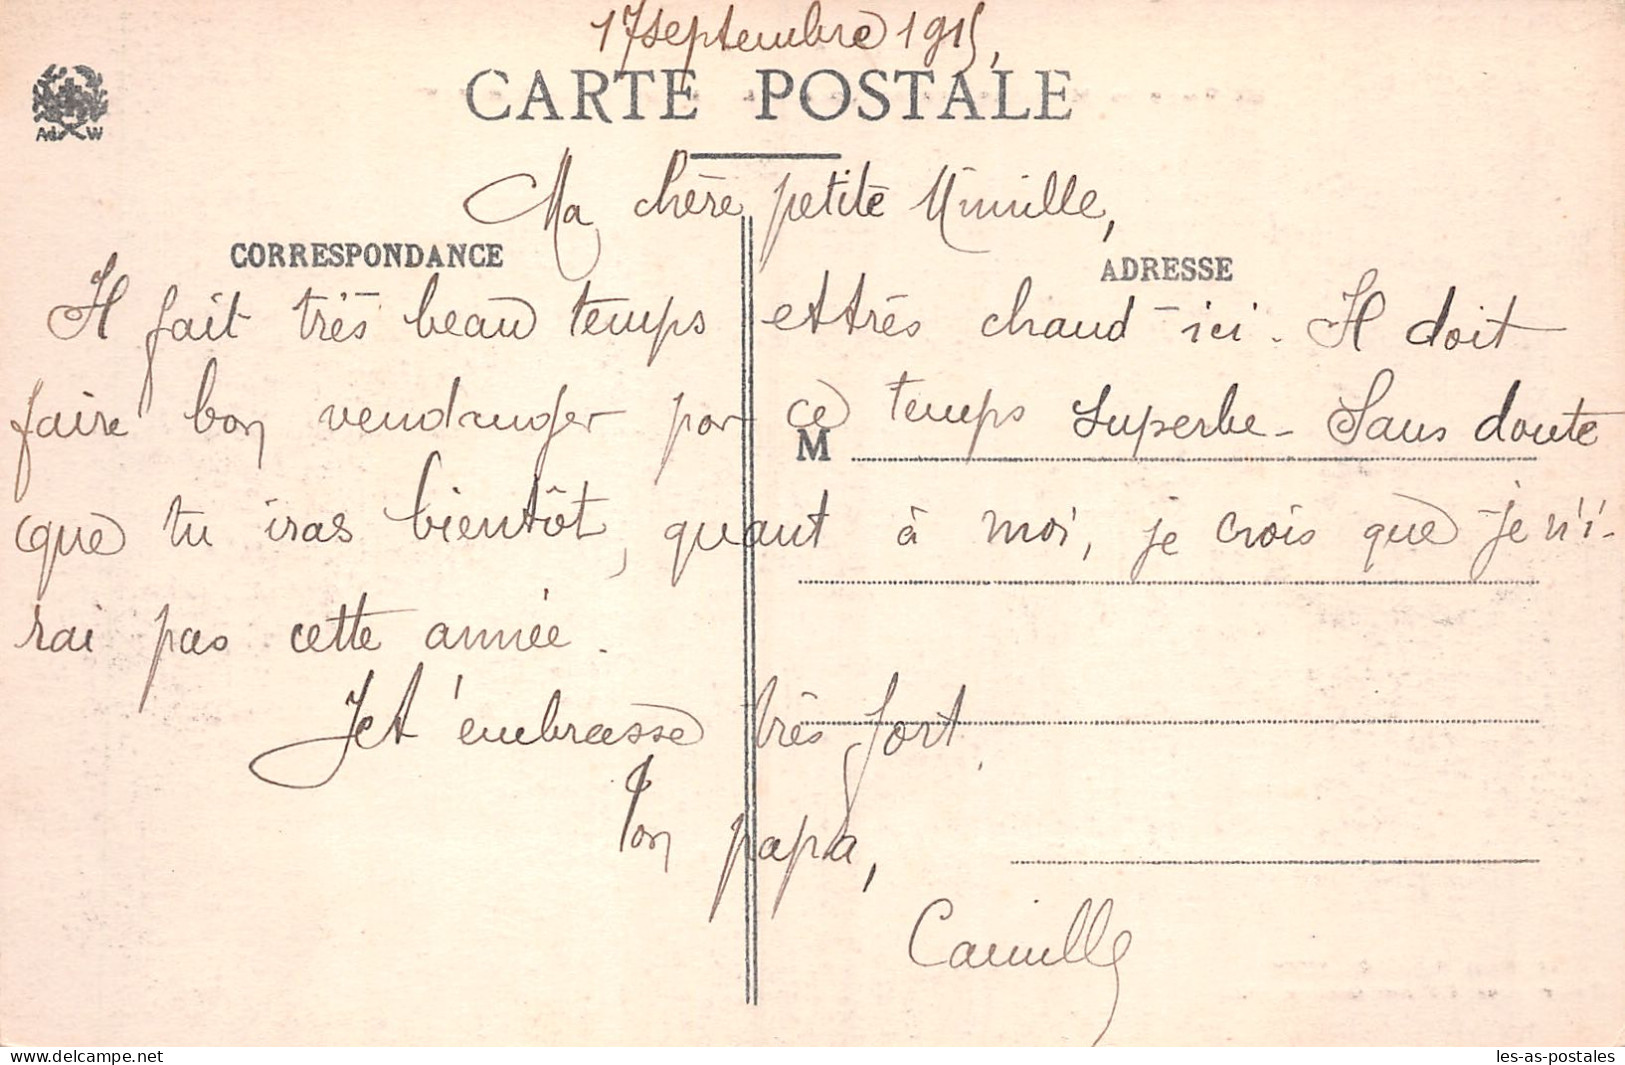 17 septembre 1915,
CARTE POSTALE
Ad W
Ma chère petite Mimille,
CORRESPONDANCE
ADRESSE
Il fait très beau temps et très chaud ici. Il doit
faire bon vendanger par ce temps superbe - Sans doute
M
que tu iras bientôt, quant à moi, je crois que je n'i-
rai pas cette année.
Je t'embrasse très fort.
Ton papa,
Camille
delcampe.net
les-as-postales